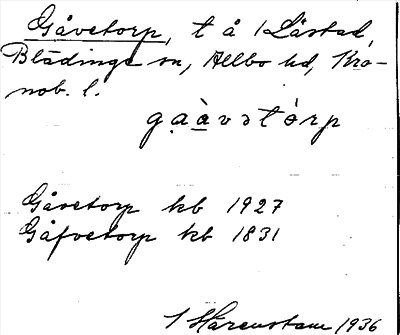 Gåvetorp, t å 1 Låstad
Blädinge sn, Allbo hd, Kro-
nob. l.
gạàvətórp
Gåvetorp kb 1927
Gåfvetorp kb 1831
1936